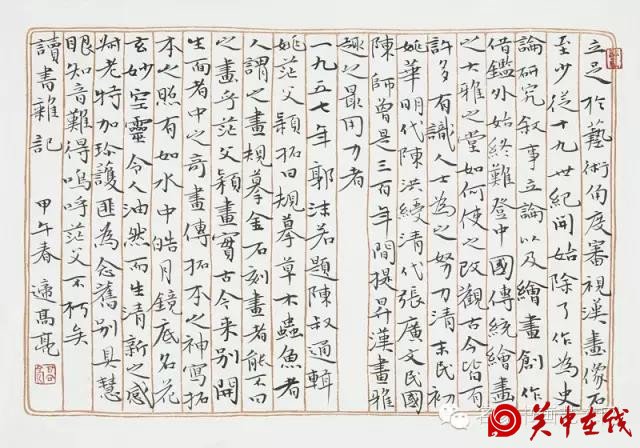 立足於藝術角度審視漢畫像石
至少從十九世紀開始除了作為史
論研究叙事立論以及繪畫創作
借鑑外始終難登中國傳統繪畫
之大雅之堂如何使之改觀古今皆有
許多有識人士為之努力清末民初
姚華明代陳洪綬清代張廣文民國
陳師曾是三百年間提昇漢畫雅
趣之最用力者
一九五七年郭沫若題陳叔通輯
姚茫父穎拓曰規摹草木蟲魚者
人謂之畫規摹金石刻畫者能不曰
之畫乎茫父穎畫實古今來別開
生面者中之奇畫傳拓本之神寫拓
本之照有如水中皓月鏡底名花
玄妙空靈令人油然而生清新之感
叔老特加珍護匪為念舊別具慧
眼知音難得嗚呼茫父不朽矣
讀書雜記 甲午春 適髙亮
关中在线